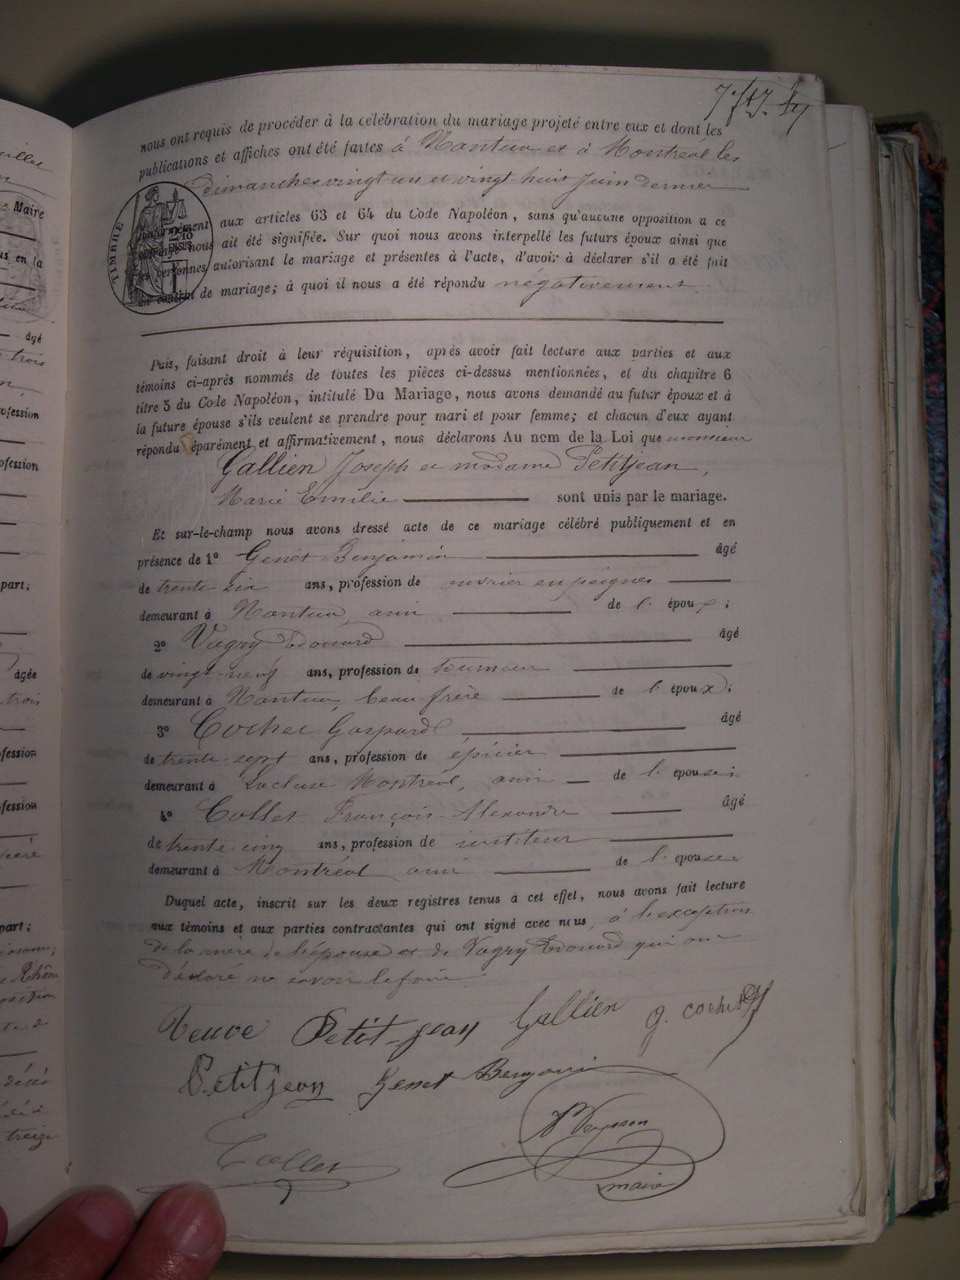 nous ont requis de procéder à la célébration du mariage projeté entre eux et dont les
publications et affiches ont été faites à Nantua et à Montréal les
dimanches vingt un et vingt huit Juin dernier
TIMBRE
conformément aux articles 63 et 64 du Code Napoléon, sans qu'aucune opposition a ce
nous ait été signifiée. Sur quoi nous avons interpellé les futurs époux ainsi que
les personnes autorisant le mariage et présentes à l'acte, d'avoir à déclarer s'il a été fait
un contrat de mariage; à quoi il nous a été répondu négativement.
Puis, faisant droit à leur réquisition, après avoir fait lecture aux parties et aux
témoins ci-après nommés de toutes les pièces ci-dessus mentionnées, et du chapitre 6
titre 5 du Code Napoléon, intitulé Du Mariage, nous avons demandé au futur époux et à
la future épouse s'ils veulent se prendre pour mari et pour femme; et chacun d'eux ayant
répondu séparément et affirmativement, nous déclarons Au nom de la Loi que monsieur
Gallien Joseph et madame Petitjean,
Marie Emilie sont unis par le mariage.
Et sur-le-champ nous avons dressé acte de ce mariage célébré publiquement et en
présence de 1° Genet Benjamin âgé
de trente six ans, profession de ouvrier en peignes
demeurant à Nantua, ami de l'époux;
2° Vugry Edouard âgé
de vingt-neuf ans, profession de tourneur
demeurant à Nantua, beau frère de l'époux;
3° Cochet Gaspard, âgé
de trente-sept ans, profession de épicier
demeurant à Lacluse Montréal, ami de l'épouse;
4° Collet François-Alexandre âgé
de trente-cinq ans, profession de instituteur
demeurant à Montréal ami de l'épouse
Duquel acte, inscrit sur les deux registres tenus a cet effet, nous avons fait lecture
aux témoins et aux parties contractantes qui ont signé avec nous, à l'exception
de la mère de l'épouse et de Vugry Edouard qui ont
déclaré ne savoir le faire.
Veuve Petit-jean Gallien g. cochet
Petitjean Genet Benjamin
Collet
maire